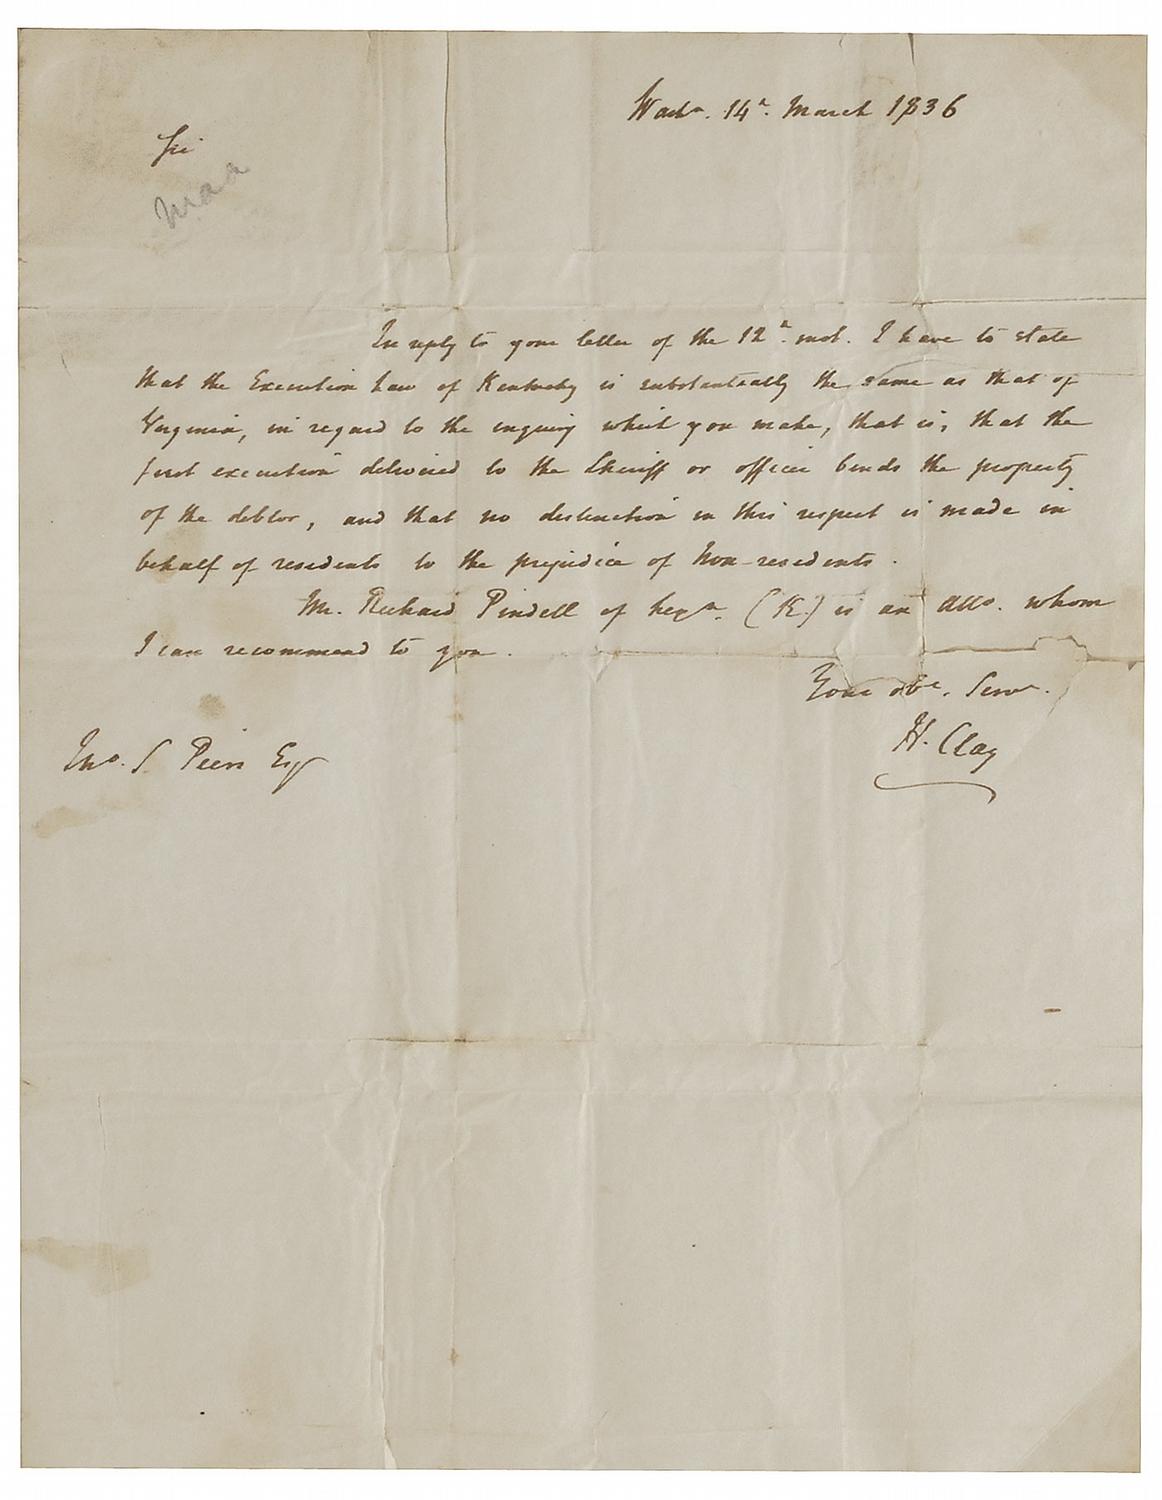 Washn. 14h. March 1836
Sir
maa
In reply to your letter of the 12h. inst. I have to state
that the Execution Law of Kentucky is substantially the same as that of
Virginia, in regard to the inquiry which you make, that is, that the
first execution delivered to the Sheriff or officer binds the property
of the debtor, and that no distinction in this respect is made in
behalf of residents to the prejudice of Non-residents.
Mr. Richard Pindell of Lexn. (K.) is an Atto. whom
I can recommend to you.
Your obt. Servt.
H. Clay
Jno. S Esq